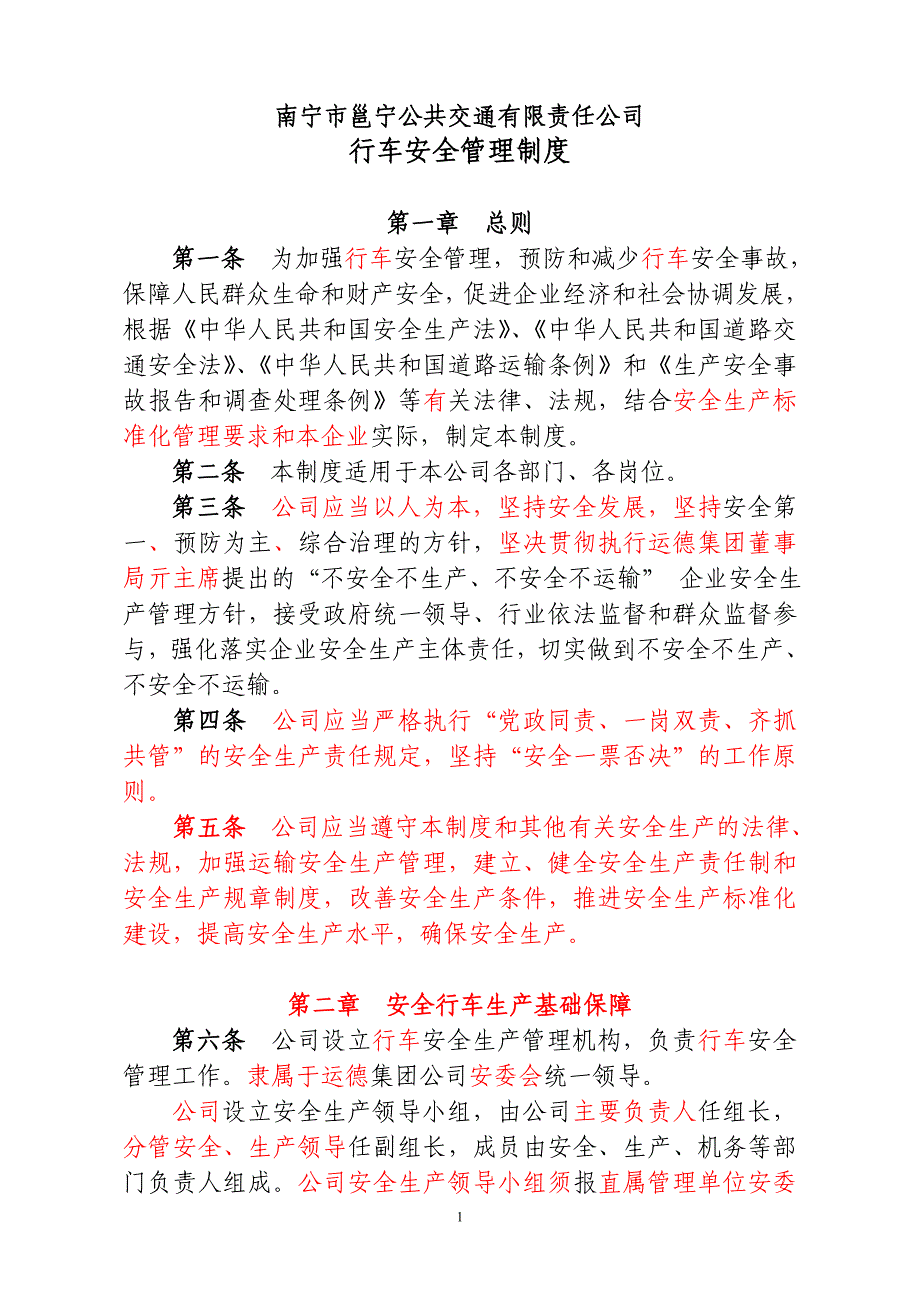 南宁市邕宁公共交通有限责任公司
行车安全管理制度
第一章 总则
第一条 为加强行车安全管理，预防和减少行车安全事故，
保障人民群众生命和财产安全，促进企业经济和社会协调发展，
根据《中华人民共和国安全生产法》、《中华人民共和国道路交
通安全法》、《中华人民共和国道路运输条例》和《生产安全事
故报告和调查处理条例》等有关法律、法规，结合安全生产标
准化管理要求和本企业实际，制定本制度。
第二条 本制度适用于本公司各部门、各岗位。
第三条 公司应当以人为本，坚持安全发展，坚持安全第
一、预防为主、综合治理的方针，坚决贯彻执行运德集团董事
局亓主席提出的“不安全不生产、不安全不运输” 企业安全生
产管理方针，接受政府统一领导、行业依法监督和群众监督参
与，强化落实企业安全生产主体责任，切实做到不安全不生产、
不安全不运输。
第四条 公司应当严格执行“党政同责、一岗双责、齐抓
共管”的安全生产责任规定，坚持“安全一票否决”的工作原
则。
第五条 公司应当遵守本制度和其他有关安全生产的法律、
法规，加强运输安全生产管理，建立、健全安全生产责任制和
安全生产规章制度，改善安全生产条件，推进安全生产标准化
建设，提高安全生产水平，确保安全生产。
第二章 安全行车生产基础保障
第六条 公司设立行车安全生产管理机构，负责行车安全
管理工作。隶属于运德集团公司安委会统一领导。
公司设立安全生产领导小组，由公司主要负责人任组长，
分管安全、生产领导任副组长，成员由安全、生产、机务等部
门负责人组成。公司安全生产领导小组须报直属管理单位安委
1